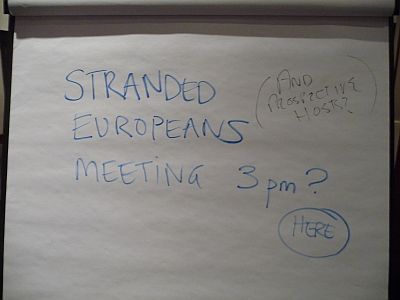 STRANDED
EUROPEANS
MEETING 3pm?
HERE
(AND
PROSPECTIVE
HOSTS?)